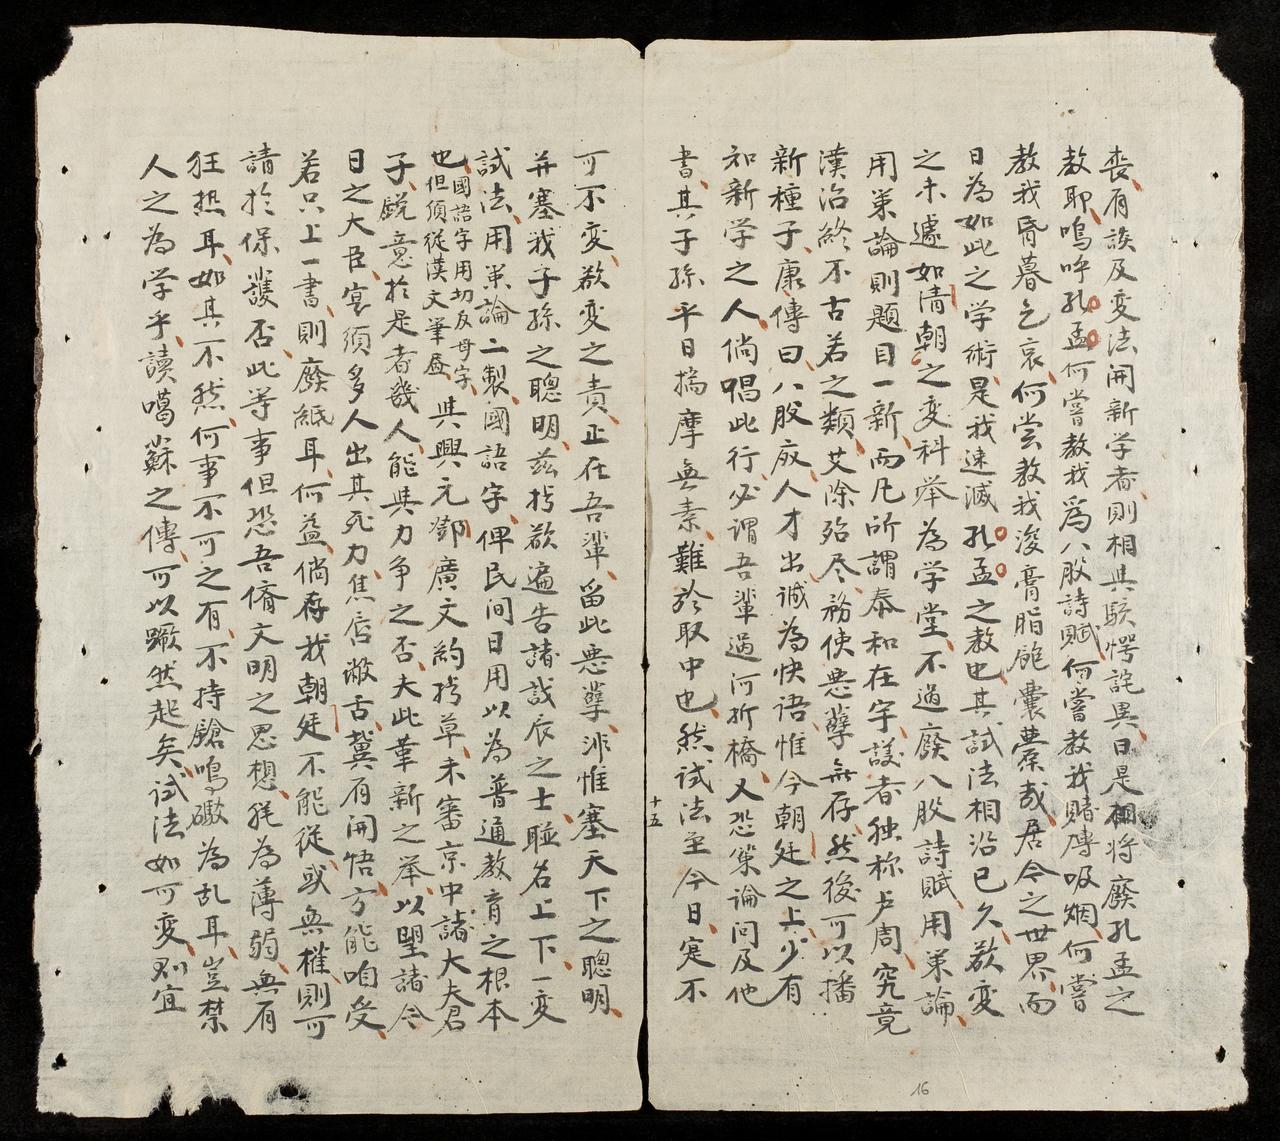 喪有談及变法開新学者則相其駭愕詫異曰是相将廢孔孟之
教耶嗚呼孔孟何嘗教我爲八股詩賦何嘗教我賭博吸烟何嘗
教我昏暮乞哀何尝教我浚膏脂飽囊橐哉居今之世界而
日為如此之学術是我速滅孔孟之教也其試法相沿已久欲变
之未遽如清朝之变科举為学堂不過廢八股詩賦用策論
用策論則題目一新而凡所謂泰和在宇護者独称卢周究竟
漢治終不古若之類艾除殆尽務使悪孽無存然後可以播
新種子康傳曰八股廢人才出诚為快語惟今朝廷之上少有
知新学之人倘唱此行必谓吾輩過河折橋又恐策論问及他
書其子孫平日揣摩無素難於取中也然试法至今日寔不
十五
可不变欲变之責正在吾輩留此悪孽非惟塞天下之聰明
并塞我子孫之聰明兹抄欲遍告諸戊辰之士聯名上下一变
試法用策論二製國語字俾民间日用以為普通教育之根本
也國語字用切反母字但須從漢文筆畫其興元鄧廣文約抄草未審京中諸大夫君
子銳意於是者幾人能與力争之否夫此革新之举以望諸今
日之大臣寔須多人出其死力焦唇敝舌冀有開悟方能咱受
若只上一書則廢紙耳何益倘存我朝廷不能從或無權則可
請於保護否此等事但恐吾儕文明之思想耗為薄弱無有
狂热耳如其不然何事不可之有不持鎗鳴礮為乱耳豈禁
人之為学乎讀噶蘇之傳可以蹶然起矣試法如可变則宜
16